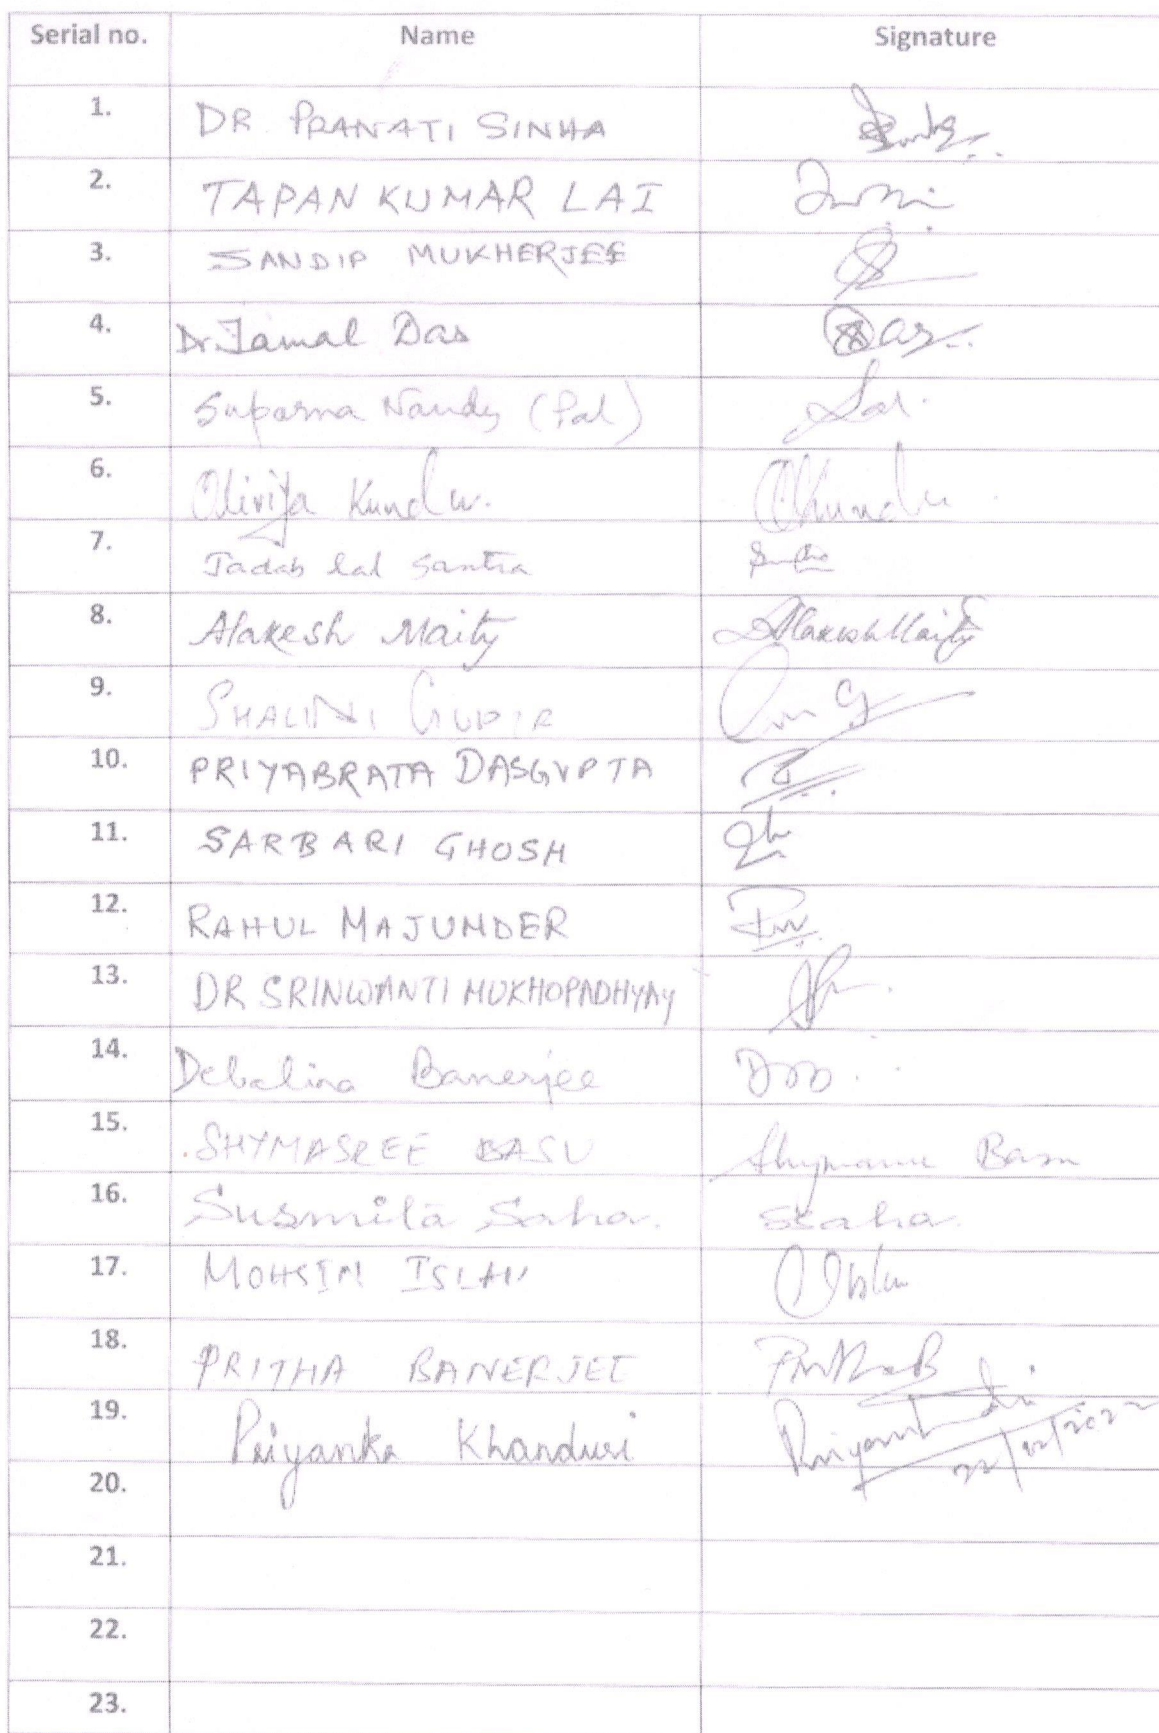 Serial no. Name Signature
1. DR. PRANATI SINHA
2. TAPAN KUMAR LAI
3. SANDIP MUKHERJEE
4. Dr. Jamal Das Das
5. Suparna Nandy (Pal) Pal
6. Olivija Kundu. OKundu
7. Jadab Lal Santra
8. Alakesh Maity Alakesh Maity
9. SHALINI
10. PRIYABRATA DASGUPTA
11. SARBARI GHOSH
12. RAHUL MAJUMDER
13. DR SRINWANTI MUKHOPADHYAY
14. Debalina Banerjee
15. SHYMASREE BASU Basu
16. Susmita Saha. SSaha.
17. MOHSIN ISLAM
18. PRITHA BANERJEE PrithaB
19. Priyanka Khanduri
22/12/2022
20.
21.
22.
23.